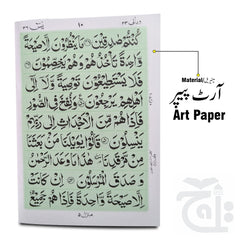 ۱۰
كُنْتُمْ صٰدِقِيْنَ مَا يَنْظُرُوْنَ اِلَّا صَيْحَةً
وَّاحِدَةً تَاْخُذُهُمْ وَهُمْ يَخِصِّمُوْنَ
فَلَا يَسْتَطِيْعُوْنَ تَوْصِيَةً وَّلَاۤ اِلٰۤى
اَهْلِهِمْ يَرْجِعُوْنَ وَنُفِخَ فِى الصُّوْرِ
فَاِذَا هُمْ مِّنَ الْاَجْدَاثِ اِلٰى رَبِّهِمْ
يَنْسِلُوْنَ قَالُوْا يٰوَيْلَنَا مَنْۢ بَعَثَنَا
مِنْ مَّرْقَدِنَا هٰذَا مَا وَعَدَ الرَّحْمٰنُ
وَصَدَقَ الْمُرْسَلُوْنَ اِنْ كَانَتْ
اِلَّا صَيْحَةً وَّاحِدَةً فَاِذَا هُمْ جَمِيْعٌ
منزل ۵
Material
آرٹ پیپر
Art Paper